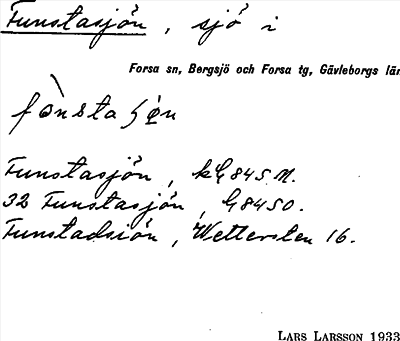 Funstasjön, sjö i
Forsa sn, Bergsjö och Forsa tg, Gävleborgs län
Funstasjön, kG 845 M.
32 Funstasjön, G 8450.
Funstadsiön, Wettersten 16.
LARS LARSSON 1933